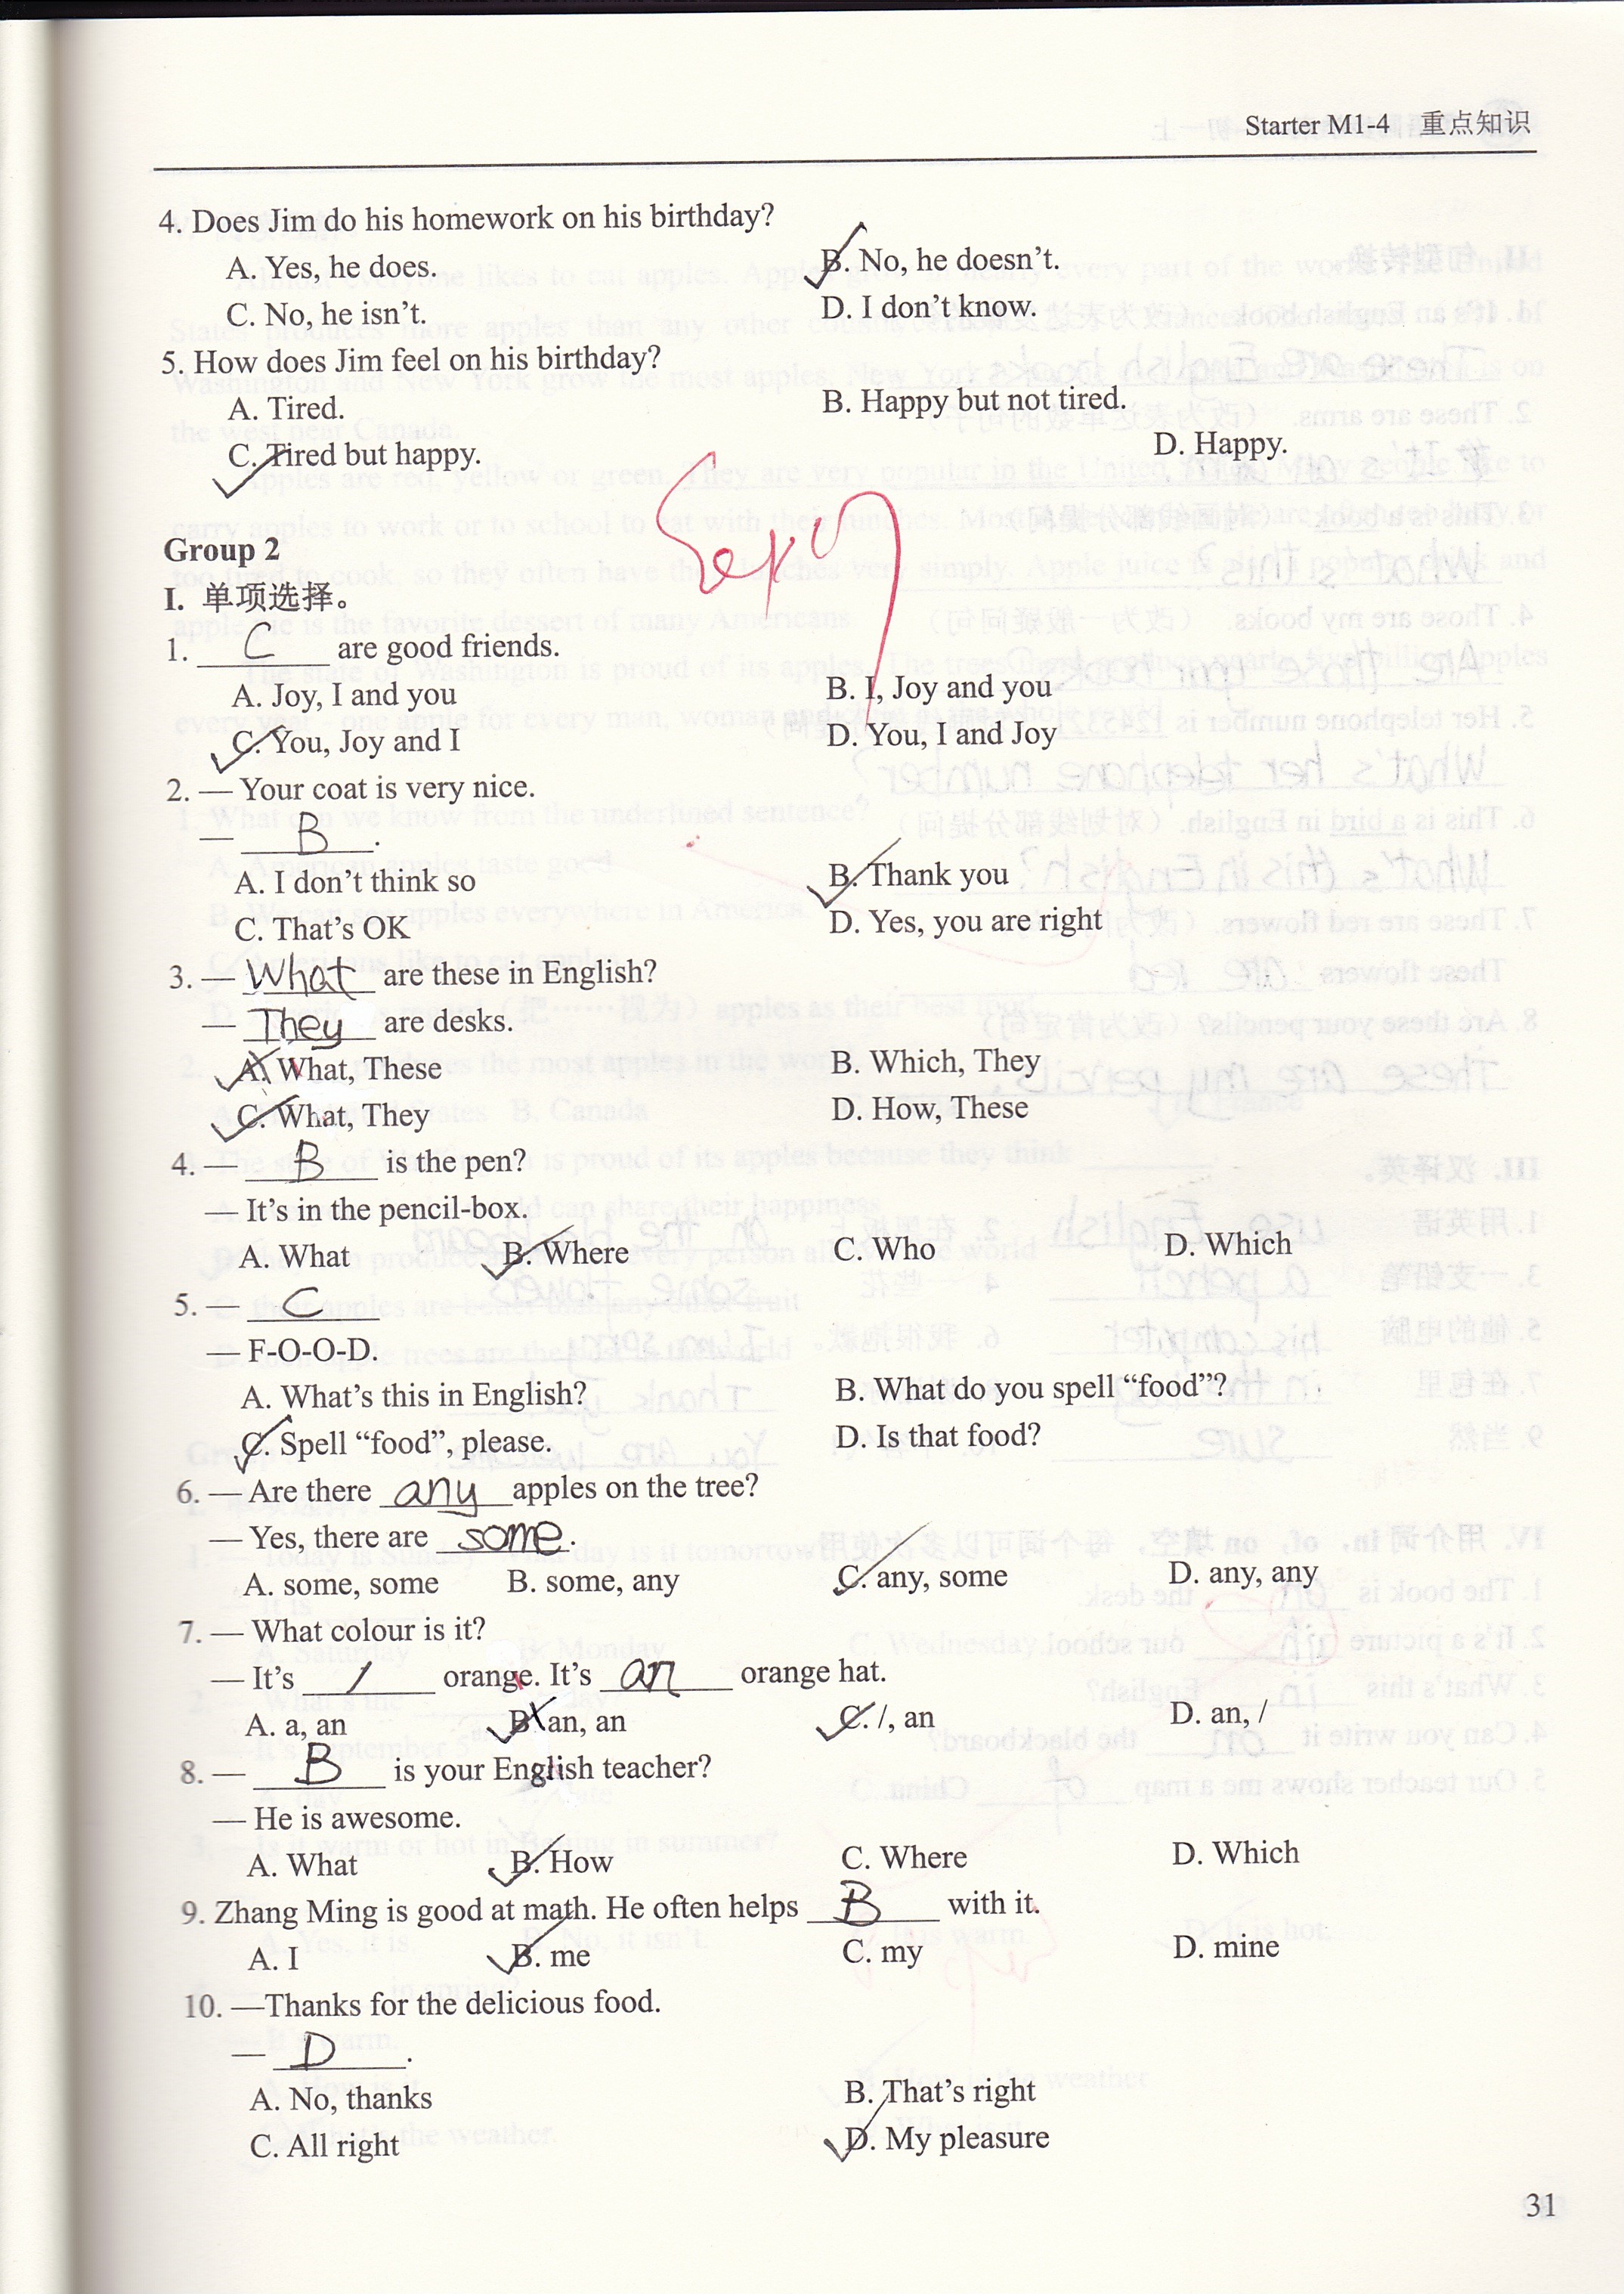 Starter M1-4 重点知识
4. Does Jim do his homework on his birthday?
A. Yes, he does. B. No, he doesn't.
C. No, he isn't. D. I don't know.
5. How does Jim feel on his birthday?
A. Tired. B. Happy but not tired.
C. Tired but happy. D. Happy.
Group 2
I. 单项选择。
1. C are good friends.
A. Joy, I and you B. I, Joy and you
C. You, Joy and I D. You, I and Joy
2. — Your coat is very nice.
— B .
A. I don't think so B. Thank you
C. That's OK D. Yes, you are right
3. — What are these in English?
— They are desks.
A. What, These B. Which, They
C. What, They D. How, These
4. — B is the pen?
— It's in the pencil-box.
A. What B. Where C. Who D. Which
5. — C
— F-O-O-D.
A. What's this in English? B. What do you spell “food”?
C. Spell “food”, please. D. Is that food?
6. — Are there any apples on the tree?
— Yes, there are some.
A. some, some B. some, any C. any, some D. any, any
7. — What colour is it?
— It's / orange. It's an orange hat.
A. a, an B. an, an C. /, an D. an, /
8. — B is your English teacher?
— He is awesome.
A. What B. How C. Where D. Which
9. Zhang Ming is good at math. He often helps B with it.
A. I B. me C. my D. mine
10. —Thanks for the delicious food.
— D .
A. No, thanks B. That's right
C. All right D. My pleasure
31